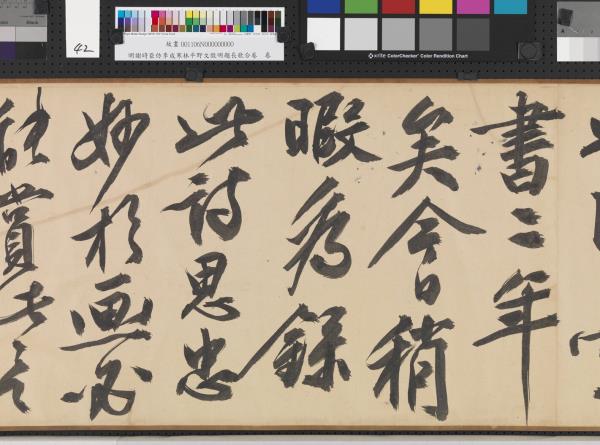 42
故畫 001106N000000000
明謝時臣仿李成寒林平野文徵明題長歌合卷 卷
x-rite ColorChecker Color Rendition Chart
書二年
矣今日稍
暇為錄
此詩思忠
妙於画
能賞